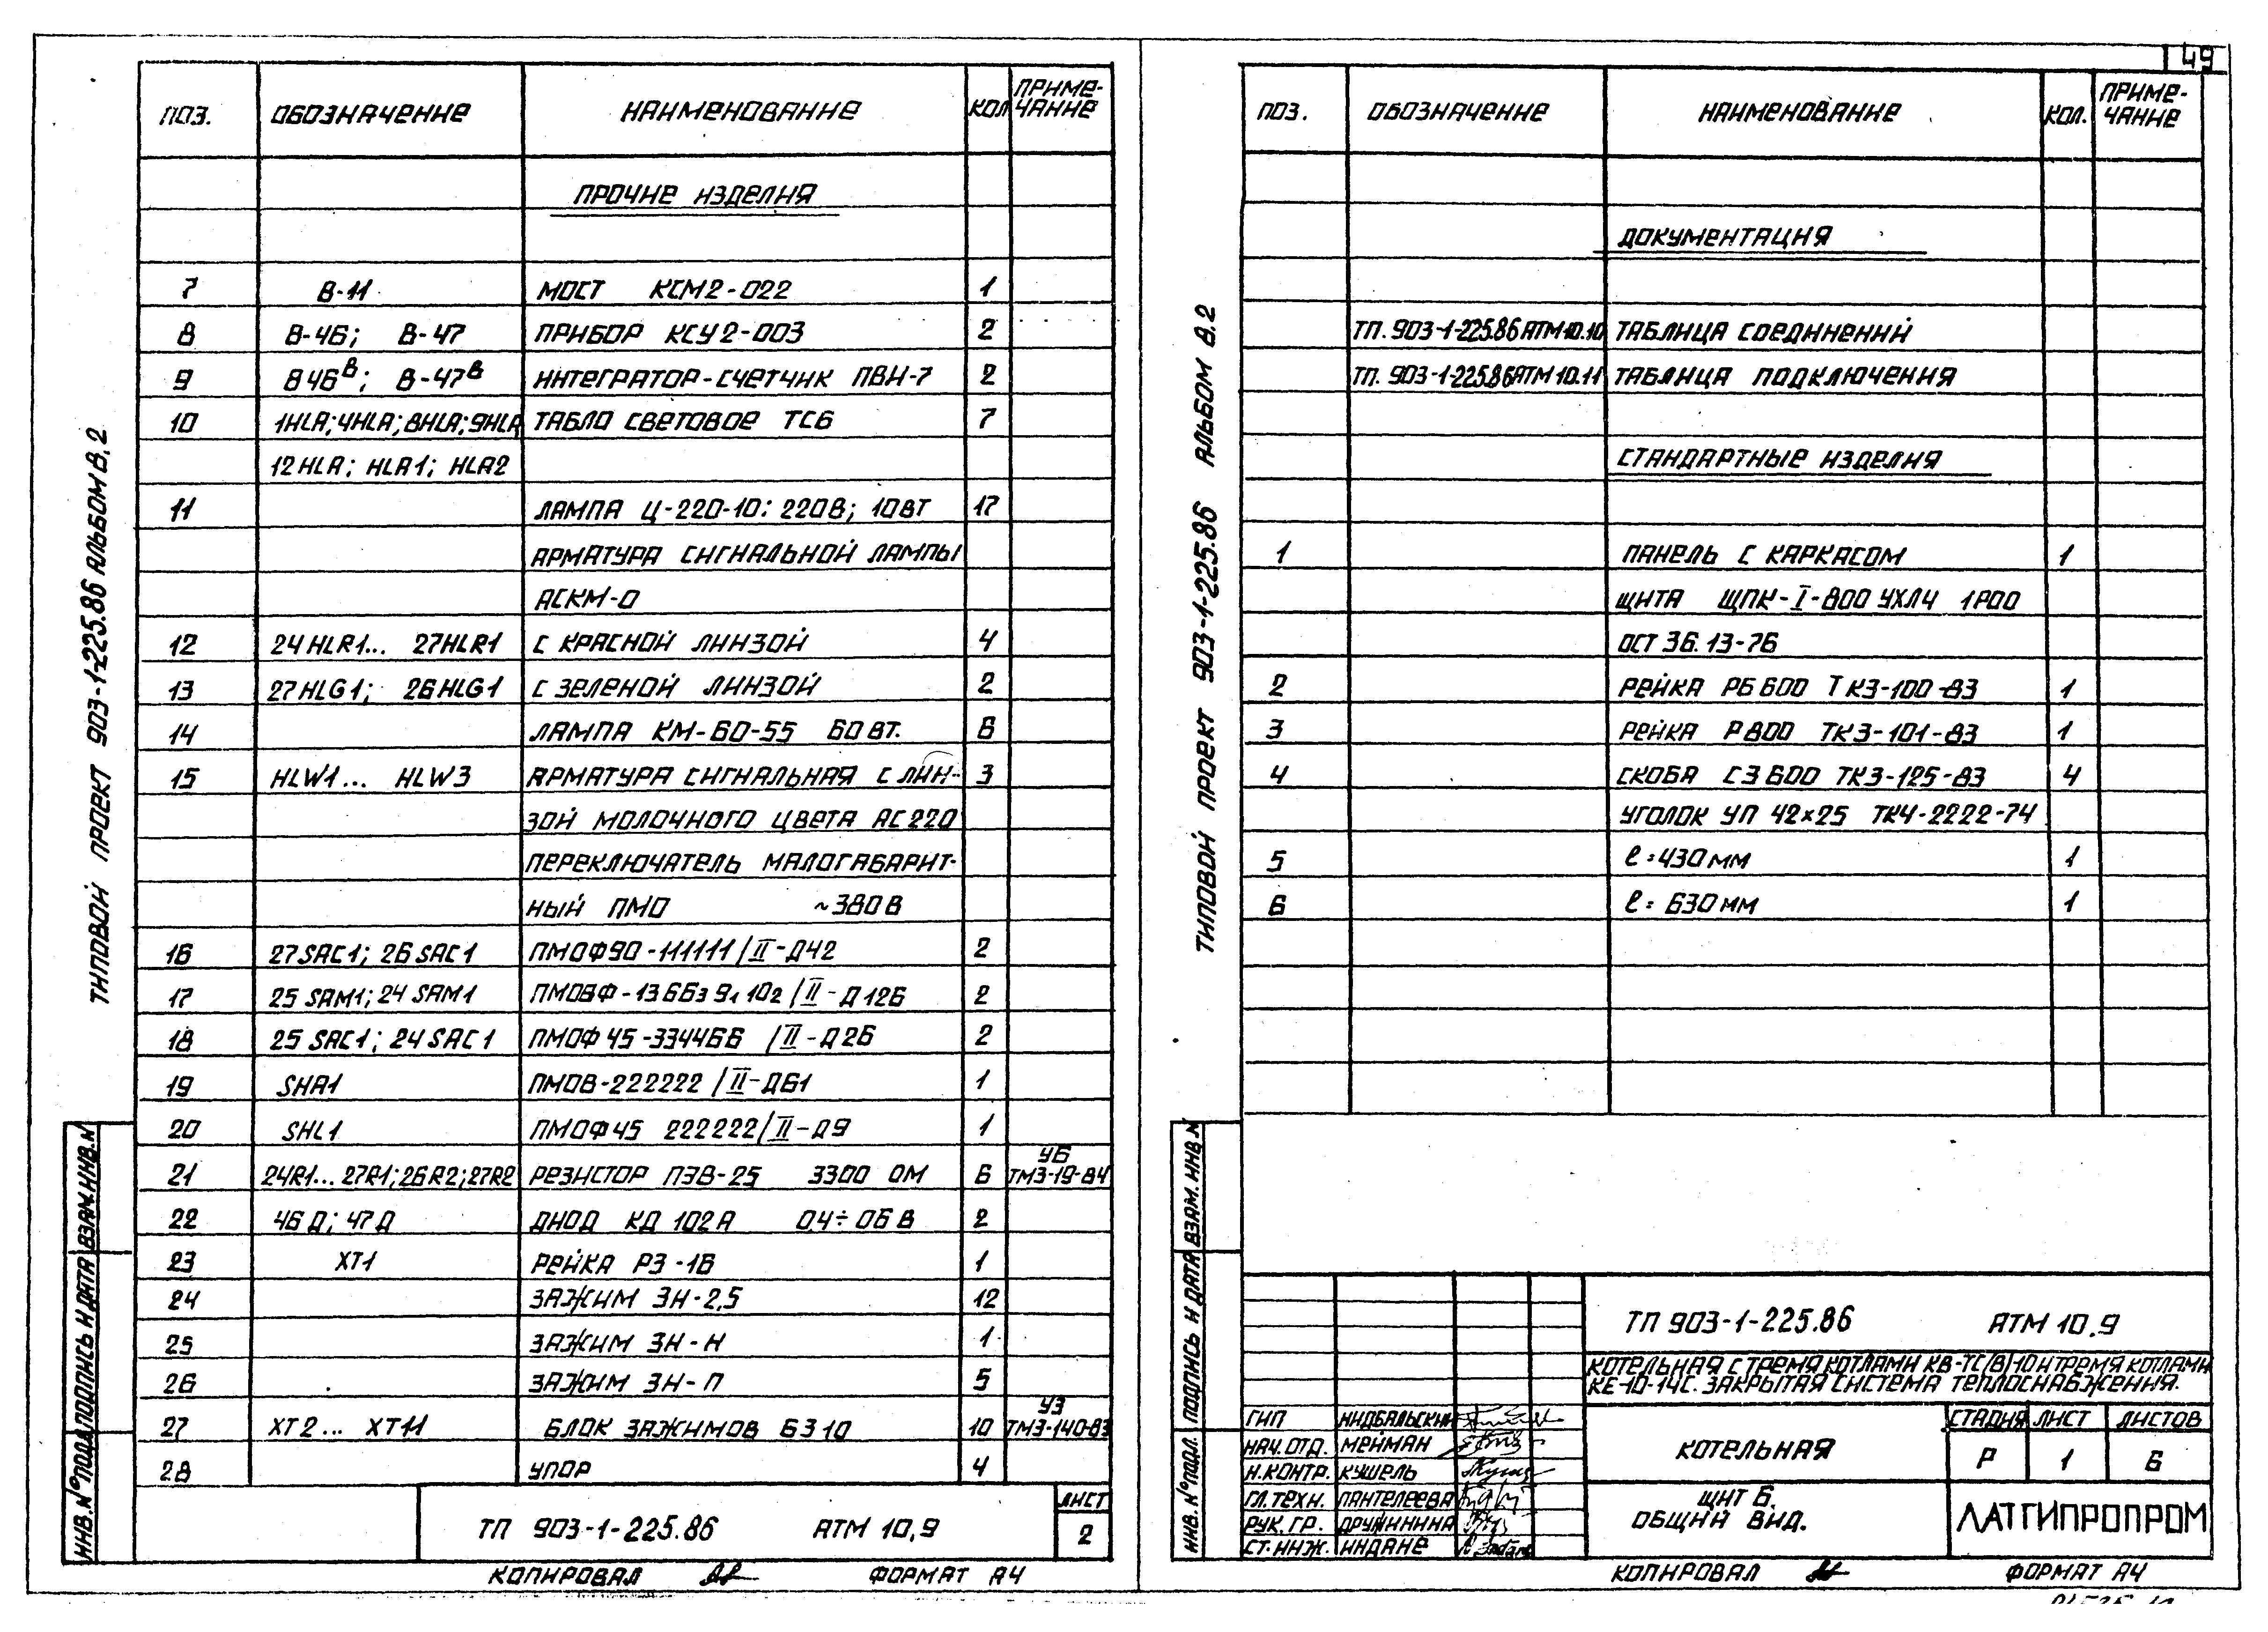 49
ТИПОВОЙ ПРОЕКТ 903-1-225.86 АЛЬБОМ 8.2
ПОЗ. ОБОЗНАЧЕНИЕ НАИМЕНОВАНИЕ КОЛ ПРИМЕ-
ЧАНИЕ
ПРОЧИЕ ИЗДЕЛИЯ
7 8-11 МОСТ КСМ2-022 1
8 8-46; 8-47 ПРИБОР КСУ2-003 2
9 846В; 8-47В ИНТЕГРАТОР-СЧЕТЧИК ПВИ-7 2
10 1HLA; 4HLA; 8HLA; 9HLA ТАБЛО СВЕТОВОЕ ТСБ 7
12HLA; HLA1; HLA2
11 ЛАМПА Ц-220-10: 220В; 10ВТ 17
АРМАТУРА СИГНАЛЬНОЙ ЛАМПЫ
АСКМ-0
12 24HLR1... 27HLR1 С КРАСНОЙ ЛИНЗОЙ 4
13 27HLG1; 26HLG1 С ЗЕЛЕНОЙ ЛИНЗОЙ 2
14 ЛАМПА КМ-60-55 60ВТ. 6
15 HLW1... HLW3 АРМАТУРА СИГНАЛЬНАЯ С ЛИН- 3
ЗОЙ МОЛОЧНОГО ЦВЕТА АС220
ПЕРЕКЛЮЧАТЕЛЬ МАЛОГАБАРИТ-
НЫЙ ПМО ~380В
16 27SAC1; 26SAC1 ПМОФ90-111111/II-Д42 2
17 25SAM1; 24SAM1 ПМОВФ-1366₃9₁10₂/II-Д126 2
18 25SAC1; 24SAC1 ПМОФ45-334466/II-Д26 2
19 SHA1 ПМОВ-222222/II-Д61 1
20 SHL1 ПМОФ45 222222/II-Д9 1
21 24R1...27R1; 26R2; 27R2 РЕЗИСТОР ПЭВ-25 3300 ОМ 6 УБ
ТМ3-19-84
22 46Д; 47Д ДИОД КД102А 0,4÷06В 2
23 ХТ1 РЕЙКА РЗ-16 1
24 ЗАЖИМ ЗН-2,5 12
25 ЗАЖИМ ЗН-Н 1
26 ЗАЖИМ ЗН-П 5
27 ХТ2... ХТ11 БЛОК ЗАЖИМОВ БЗ10 10 У3
ТМ3-140-83
28 УПОР 4
ИНВ.№ПОДЛ ПОДПИСЬ И ДАТА ВЗАМ.ИНВ.№
ТП 903-1-225.86 АТМ 10,9
ЛИСТ
2
КОПИРОВАЛ ФОРМАТ А4
ТИПОВОЙ ПРОЕКТ 903-1-225.86 АЛЬБОМ 8.2
ПОЗ. ОБОЗНАЧЕНИЕ НАИМЕНОВАНИЕ КОЛ. ПРИМЕ-
ЧАНИЕ
ДОКУМЕНТАЦИЯ
ТП. 903-1-225.86 АТМ10.10 ТАБЛИЦА СОЕДИНЕНИЙ
ТП. 903-1-225.86 АТМ10.11 ТАБЛИЦА ПОДКЛЮЧЕНИЯ
СТАНДАРТНЫЕ ИЗДЕЛИЯ
1 ПАНЕЛЬ С КАРКАСОМ 1
ЩИТА ЩПК-I-800 УХЛ4 1Р00
ОСТ 36.13-76
2 РЕЙКА РБ600 ТК3-100-83 1
3 РЕЙКА Р800 ТК3-101-83 1
4 СКОБА С3600 ТК3-125-83 4
УГОЛОК УП 42×25 ТК4-2222-74
5 ℓ=430мм 1
6 ℓ=630мм 1
ИНВ.№ПОДЛ. ПОДПИСЬ И ДАТА ВЗАМ.ИНВ.№
ТП 903-1-225.86 АТМ 10.9
КОТЕЛЬНАЯ С ТРЕМЯ КОТЛАМИ КВ-ТС(В)10 И ТРЕМЯ КОТЛАМИ
КЕ-10-14С. ЗАКРЫТАЯ СИСТЕМА ТЕПЛОСНАБЖЕНИЯ.
ГИП НИДБАЛЬСКИЙ
НАЧ.ОТД. МЕЙМАН
Н.КОНТР. КУШЕЛЬ
ГЛ.ТЕХН. ПАНТЕЛЕЕВА
РУК.ГР.
СТ.ИНЖ. ИНДАНЕ
КОТЕЛЬНАЯ
СТАДИЯ ЛИСТ ЛИСТОВ
Р 1 6
ЩИТ 6.
ОБЩИЙ ВИД.
ЛАТГИПРОПРОМ
КОПИРОВАЛ ФОРМАТ А4